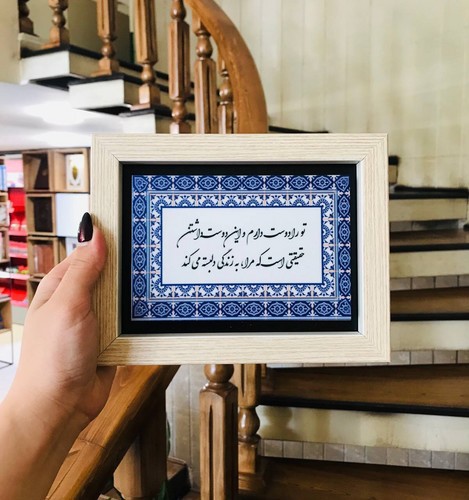 تو را دوست دارم و این دوست داشتن
حقیقتی است که مرا به زندگی دلبسته می کند